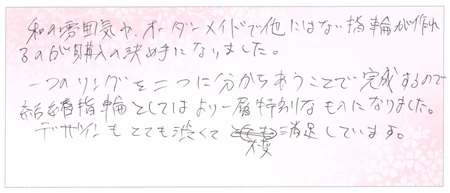 和の雰囲気や、オーダーメイドで他にはない指輪が作れ
るのが購入の決め手になりました。
一つのリングを二つに分かちあうことで完成するので
結婚指輪としてはより一層特別なものになりました。
デザインもとても渋くて大変満足しています。